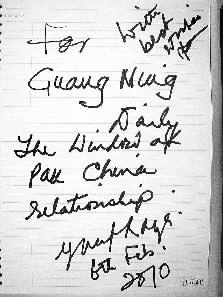 For
With
best
wishes
Guang Ming
Daily
The Window of
Pak China
relationship.
6th Feb.
2010